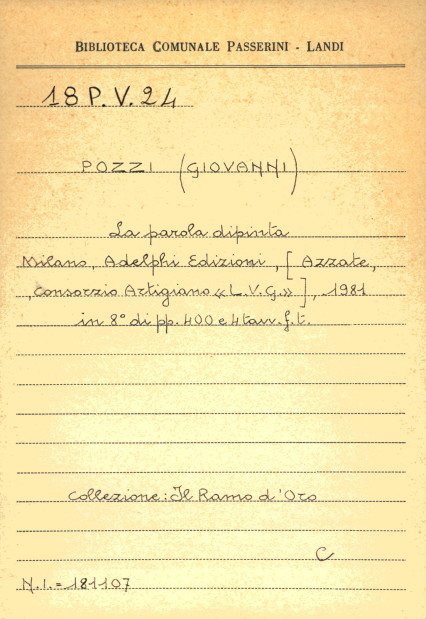 BIBLIOTECA COMUNALE PASSERINI - LANDI
18 P. V. 24
POZZI (GIOVANNI)
La parola dipinta
Milano, Adelphi Edizioni, [Azzate,
Consorzio Artigiano «L.V.G.»], 1981
in 8° di pp. 400 e 4 tavv. f. t.
Collezione: Il Ramo d'Oro
C
N.I. = 181107